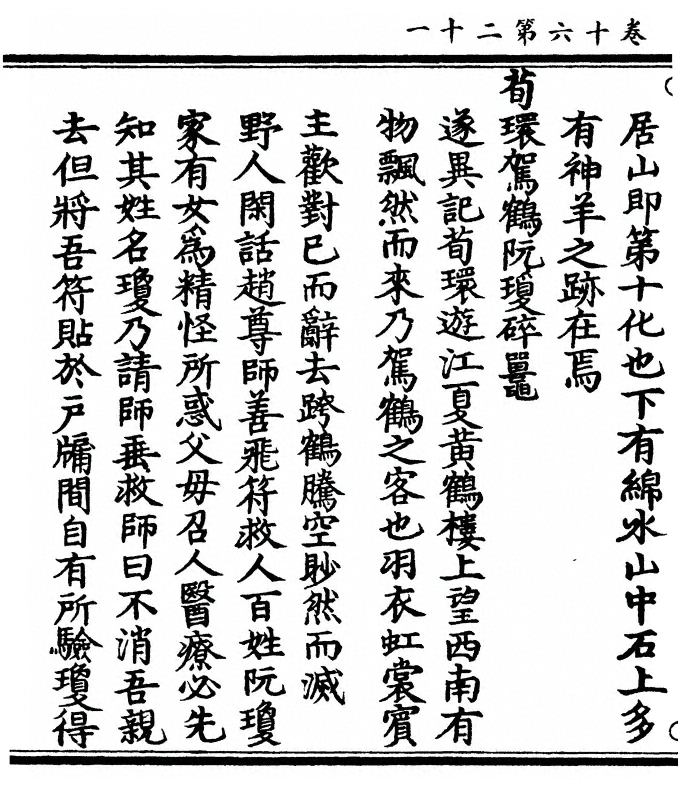 卷十六第二十一
居山即第十化也下有綿水山中石上多
有神羊之跡在焉
荀環駕鶴阮瓊碎鼉
遂異記荀環遊江夏黃鶴樓上望西南有
物飄然而來乃駕鶴之客也羽衣虹裳賓
主歡對已而辭去跨鶴騰空眇然而滅
野人閑話趙尊師善飛符救人百姓阮瓊
家有女爲精怪所惑父母召人醫療必先
知其姓名瓊乃請師垂救師曰不消吾親
去但將吾符貼於戶牖間自有所驗瓊得